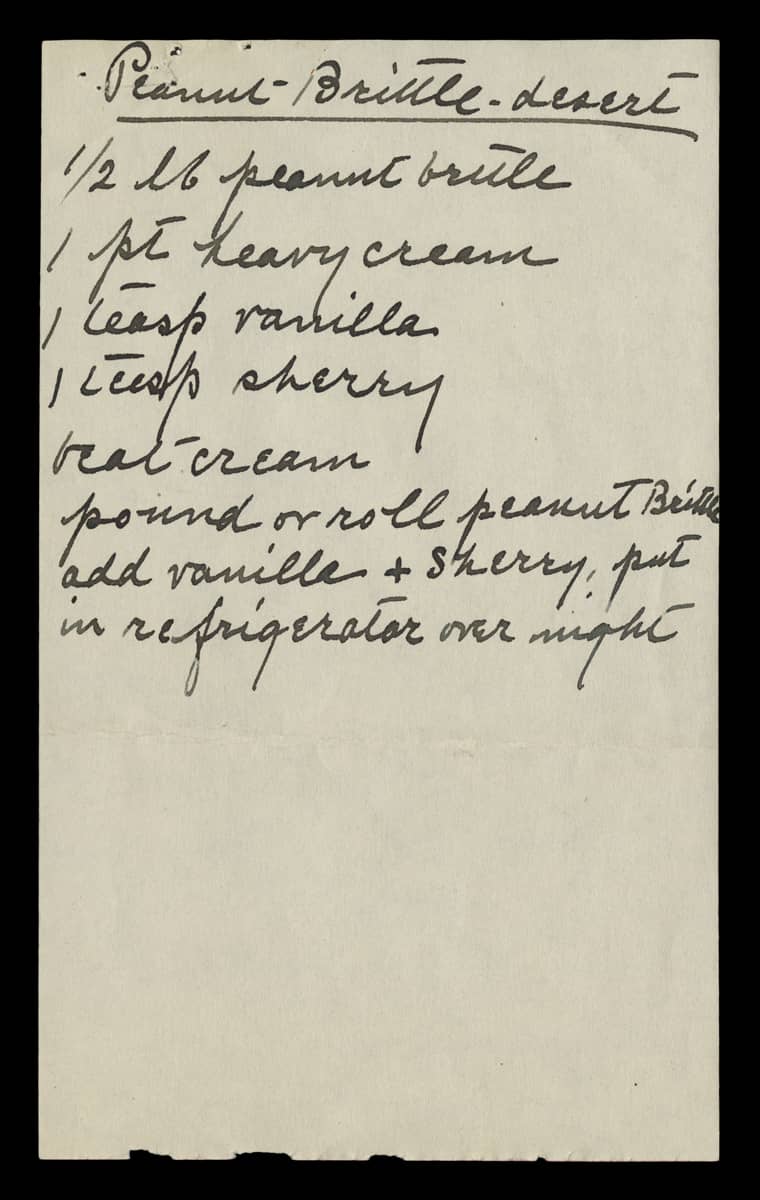 Peanut-Brittle-desert
1/2 lb peanut brittle
1 pt heavy cream
1 teasp vanilla
1 teesp sherry
beat cream
pound or roll peanut Brittle
add vanilla + Sherry, put
in refrigerator over night